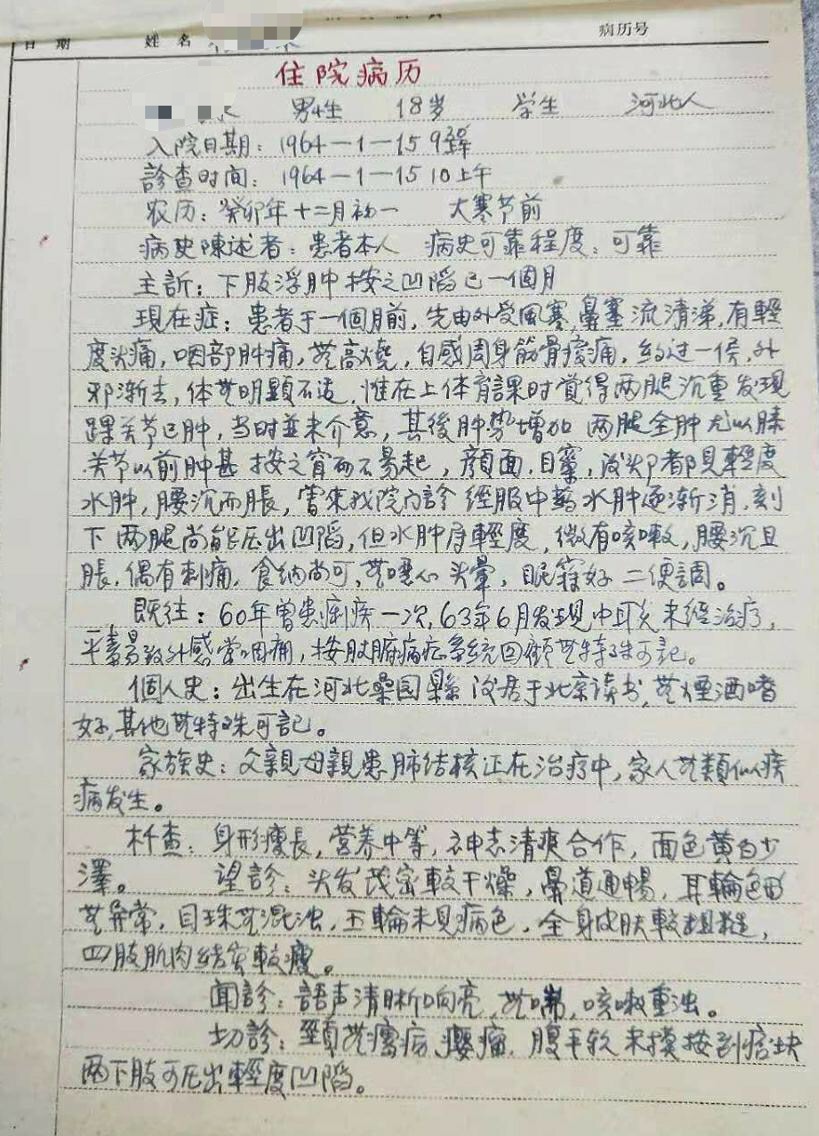 日 期 姓 名 病历号
住院病历
男性 18岁 学生 河北人
入院日期：1964-1-15 9
診查时间：1964-1-15 10上午
农历：癸卯年十二月初一 大寒节前
病史陳述者：患者本人 病史可靠程度：可靠
主訴：下肢浮肿按之凹陷已一個月
現在症：患者于一個月前，先由外受風寒，鼻塞流清涕，有輕
度头痛，咽部肿痛，芜高燒，自感周身筋骨痠痛，约过一候，外
邪漸去，体芜明顯不适，惟在上体育課时覚得两腿沉重发現
踝关节已肿，当时並未介意，其後肿势增加 两腿全肿尤以膝
关节以前肿甚 按之窅而不易起，顔面，目窠，都見輕度
水肿，腰沉而脹，曾來我院门診 經服中藥水肿逐漸消，刻
下 两腿尚能压出凹陷，但水肿輕度，微有咳嗽，腰沉且
脹，偶有刺痛，食纳尚可，芜噁心 头暈，眠寐好 二便調。
既往：60年曾患痢疾一次，63年6月发現中耳炎未经治疗，
平素易致外感常咽痛，按肚腑病症系統回顧芜特殊可記。
個人史：出生在河北縣 后居于北京读书，芜煙酒嗜
好，其他芜特殊可記。
家族史：父親母親患肺结核正在治疗中，家人芜類似疾
病发生。
杆查：身形瘦長，营养中等，神志清爽合作，面色黄白少
澤。 望診：头发茂密較干燥，鼻道通暢，耳輪色形
芜异常，目珠芜混浊，五輪未見病色，全身皮肤較粗糙，
四肢肌肉结实較瘦。
聞診：語声清晰响亮，芜喘，咳嗽重浊。
切診：頸芜瘰疬、瘿瘤，腹平软未摸按到痞块
两下肢可压出輕度凹陷。